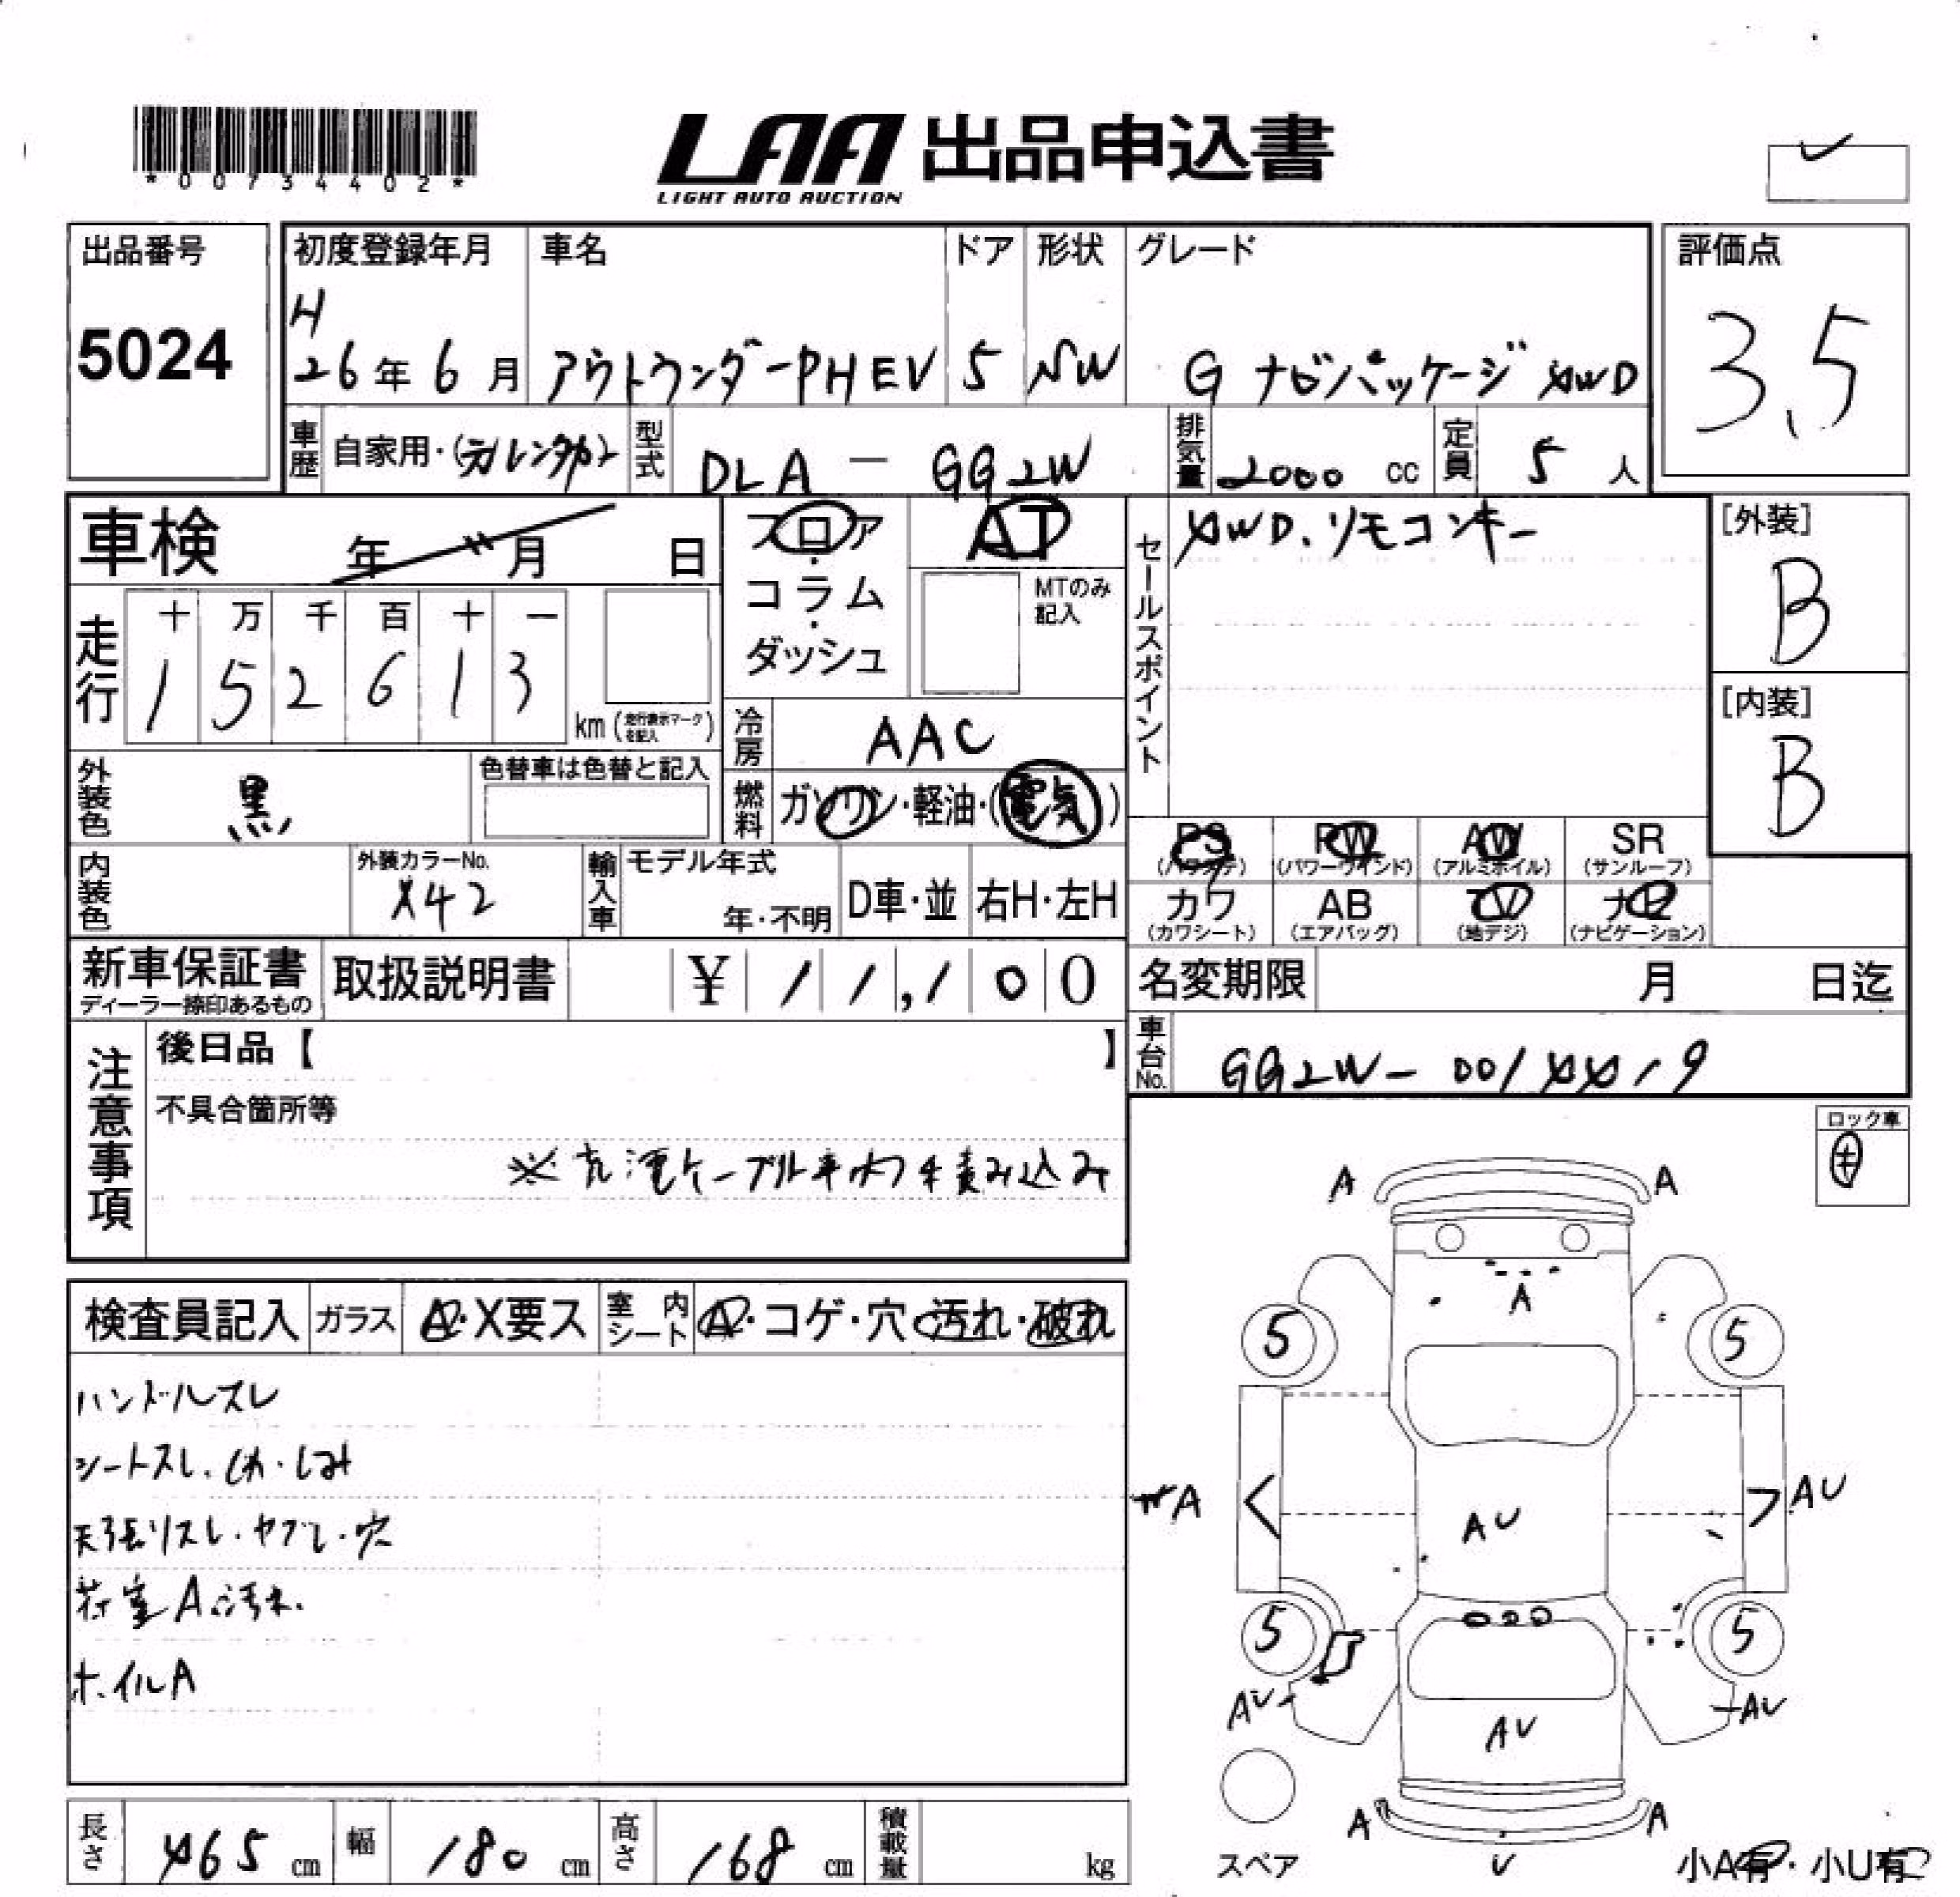 *00734402*
LAA 出品申込書
LIGHT AUTO AUCTION
出品番号
5024
初度登録年月
H
26年 6月
車名
アウトランダーPHEV
ドア
5
形状
NW
グレード
G ナビパッケージ 4WD
評価点
3.5
車歴
自家用・(元レンタカー)
型式
DLA - GG2W
排気量
2000 cc
定員
5 人
車検 年 月 日
フロア
コラム
ダッシュ
AT
MTのみ
記入
セールスポイント
4WD、リモコンキー
[外装]
B
[内装]
B
走行
十 万 千 百 十 一
1 5 2 6 1 3
km (走行表示マークを記入)
冷房
AAC
外装色
黒
色替車は色替と記入
燃料
ガソリン・軽油・(電気)
PS
(パワステ)
PW
(パワーウインド)
AW
(アルミホイル)
SR
(サンルーフ)
内装色
外装カラーNo.
X42
輸入車
モデル年式
年・不明
D車・並
右H・左H
カワ
(カワシート)
AB
(エアバッグ)
TV
(地デジ)
ナビ
(ナビゲーション)
新車保証書
ディーラー捺印あるもの
取扱説明書
¥ 1 1,1 0 0
名変期限 月 日迄
注意事項
後日品【 】
車台No.
GG2W-0014419
不具合箇所等
※充電ケーブル車内積み込み
ロック車
キ
検査員記入
ガラス
A・X要ス
室内シート
A・コゲ・穴・汚れ・破れ
ハンドルスレ
シートスレ、シワ・しみ
天張リスレ・ヤブレ・穴
荷室A汚れ.
ホイルA
A A
A
5 5
A AU
AU
5 5
AU AU
AU
A A
U
スペア
小A有・小U有
長さ
465 cm
幅
180 cm
高さ
168 cm
積載量
kg